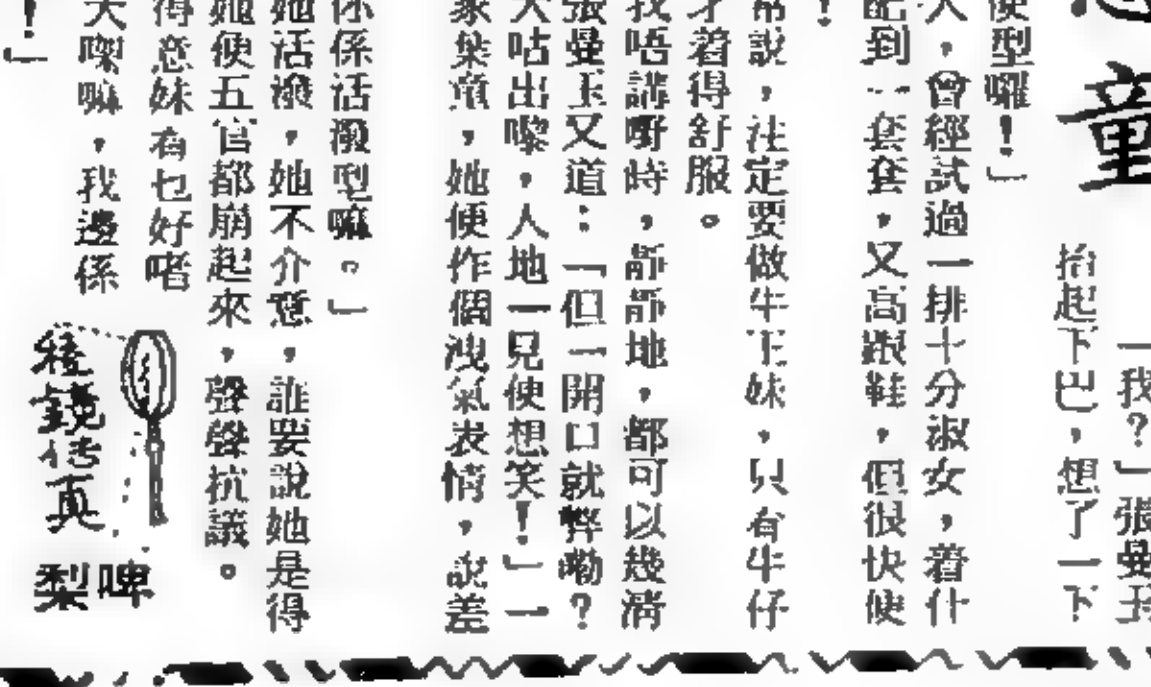 童
一我？」張曼玉
抬起下巴，想了一下
便型囉！」
人，曾經試過一排十分淑女，着什
配到一套套，又高跟鞋，但很快便
！
常說，注定要做牛王妹，只有牛仔
才着得舒服。
我唔講嘢時，靜靜地，都可以幾清
張曼玉又道：「但一開口就弊嘞？
大咕出嚟，人地一見便想笑！」一
家葉童，她便作個洩氣表情，說差
你係活潑型嘛。」
她活潑，她不介意，誰要說她是得
她便五官都崩起來，聲聲抗議。
得意妹有乜好啫
大㗎嘛，我邊係
！」
鏡
真
啤梨